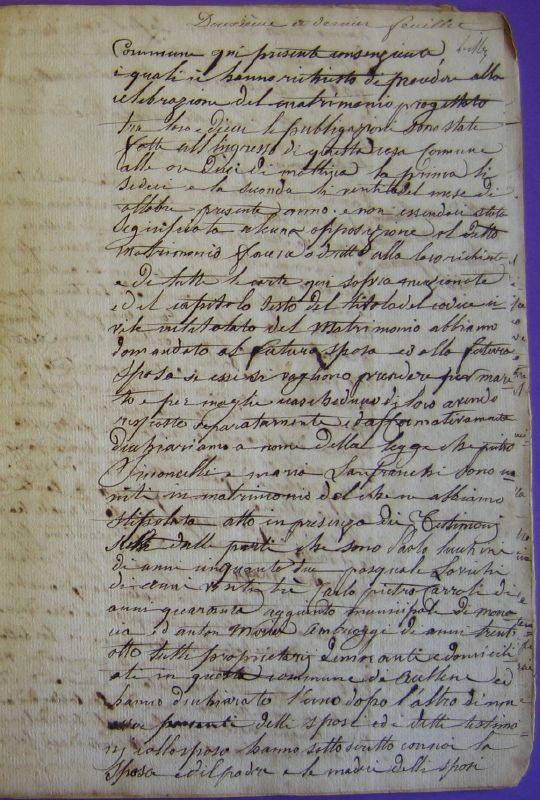 Douzieme et dernier feuillet
Commune qui presente consenziente
i quali ci hanno richiesto di procedere alla
celebrazione del matrimonio progettato
tra loro e di cui le pubblicazioni sono state
fatte all'ingresso di questa casa comune
alle ore dieci di mattina la prima li
sedeci e la seconda li venti del mese di
ottobre presente anno e non essendoci stata
alcuna opposizione al detto
matrimonio facendo dritto alla loro richiesta
e di tutte le carte qui sopra menzionate
ed il capitolo sesto del titolo del codice ci
vile intitolato del Matrimonio abbiamo
domandato al futuro sposo ed alla futura
sposa se essi si vogliono prendere per mari
to e per moglie ciascheduno di loro avendo
risposto separatamente ed affirmativamente
dichiariamo a nome della legge che pietro
Simoncelli e maria Lanfranchi sono u
niti in matrimonio del che ne abbiamo
stipolato atto in presenza di Testimonj
delle parti che sono Paolo
di anni cinquanta due pasquale
di anni venti tre pietro di
anni quaranta aggiunto municipale di mono
cia ed anton Maria Ambroggi di anni trent
otto tutti proprietarj dimoranti e domicili
ati in questa commune di ed
hanno dichiarato l'uno dopo l'altro di non
essere parenti delli sposi ed i detti testimo
nj collo sposo hanno sottoscritto con noi la
sposa ed il padre e le madri delli sposi